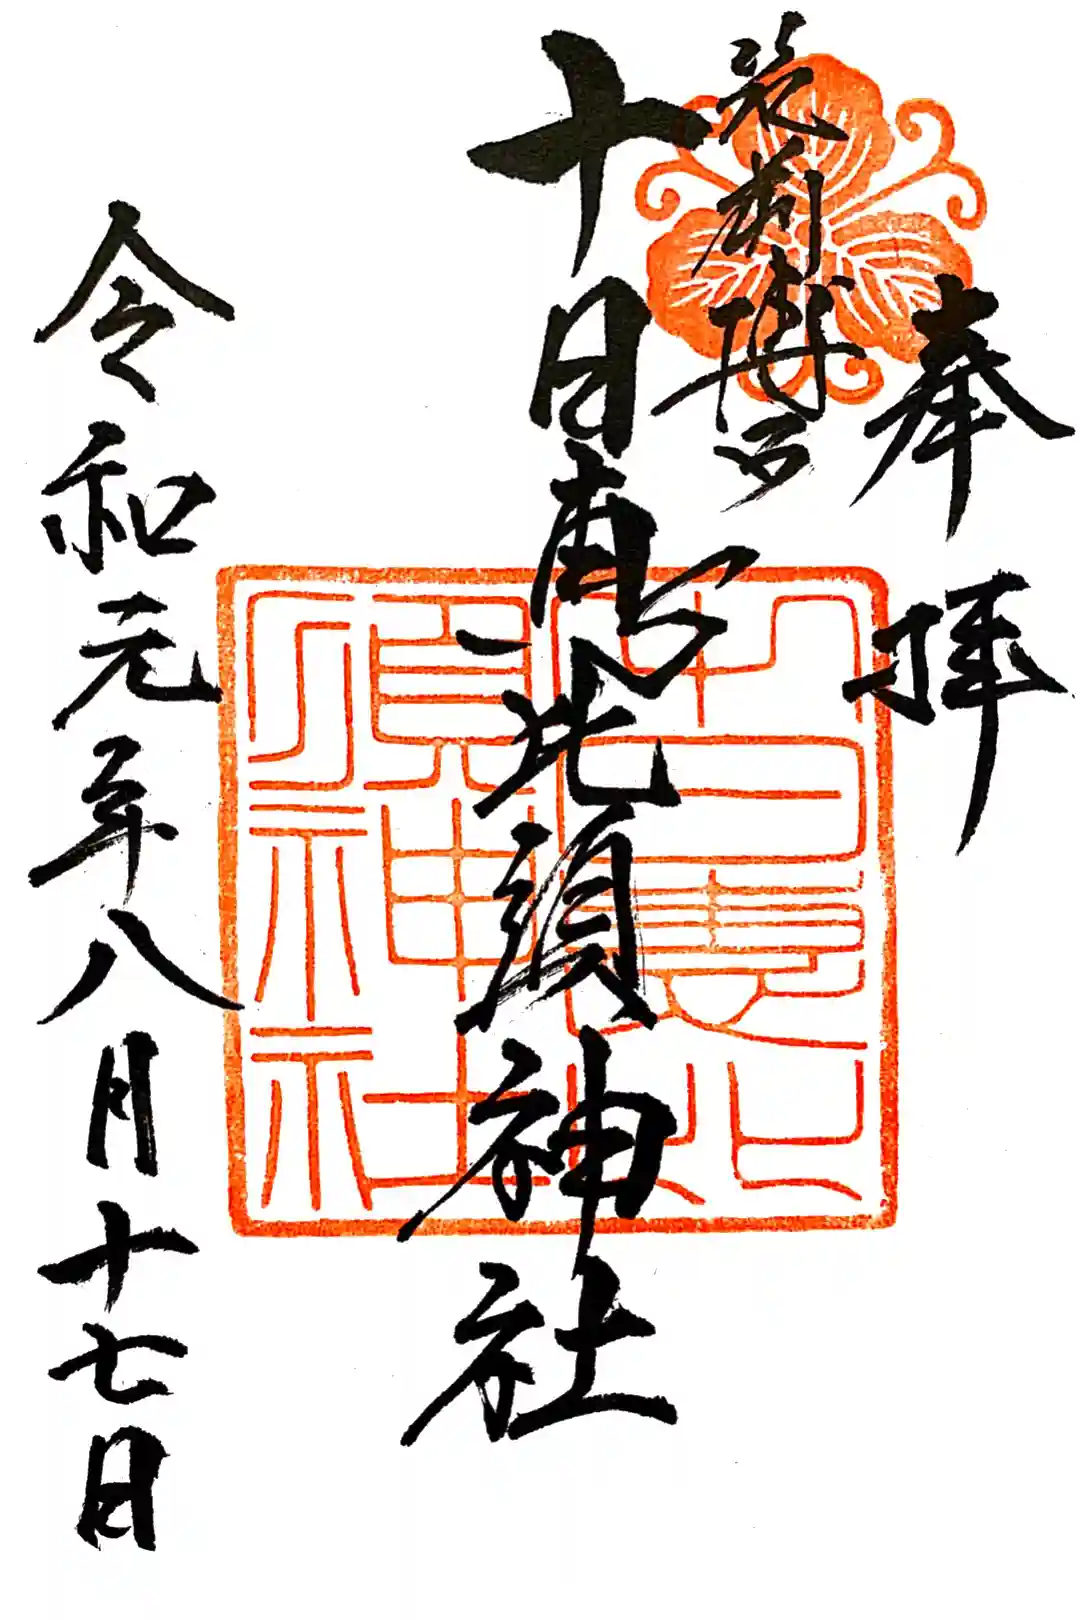 奉拝
筑前博多
十日恵比須神社
令和元年八月十七日
十日恵比須神社